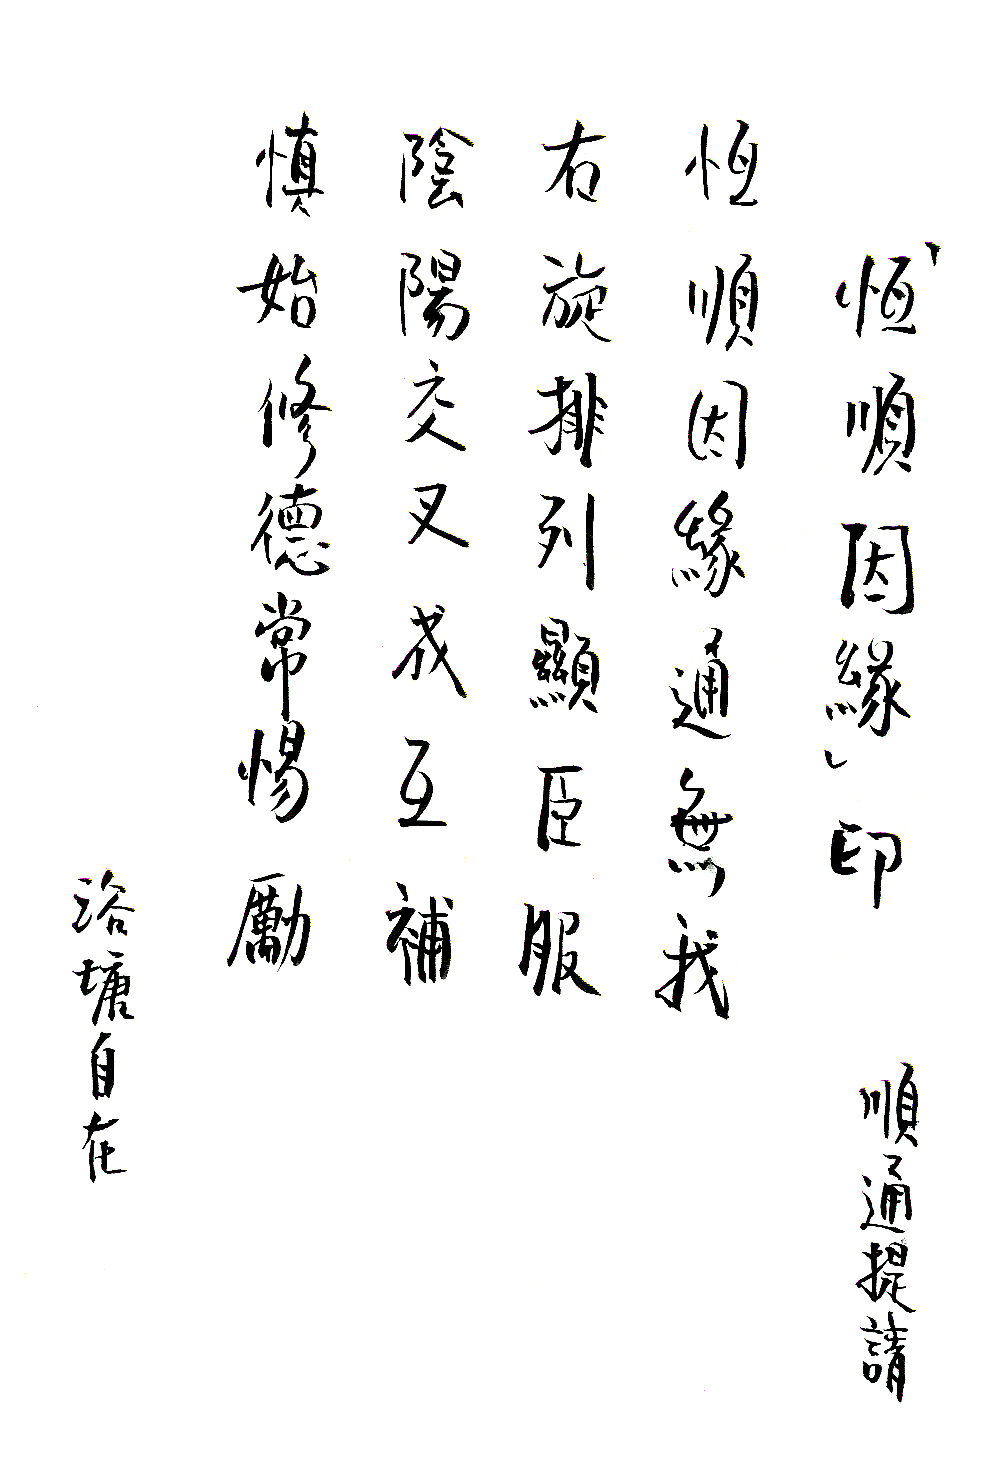 「恆順因緣」印 順通提請
恆順因緣通無我
右旋排列顯臣服
陰陽交叉成互補
慎始修德常惕勵
浴塘自在